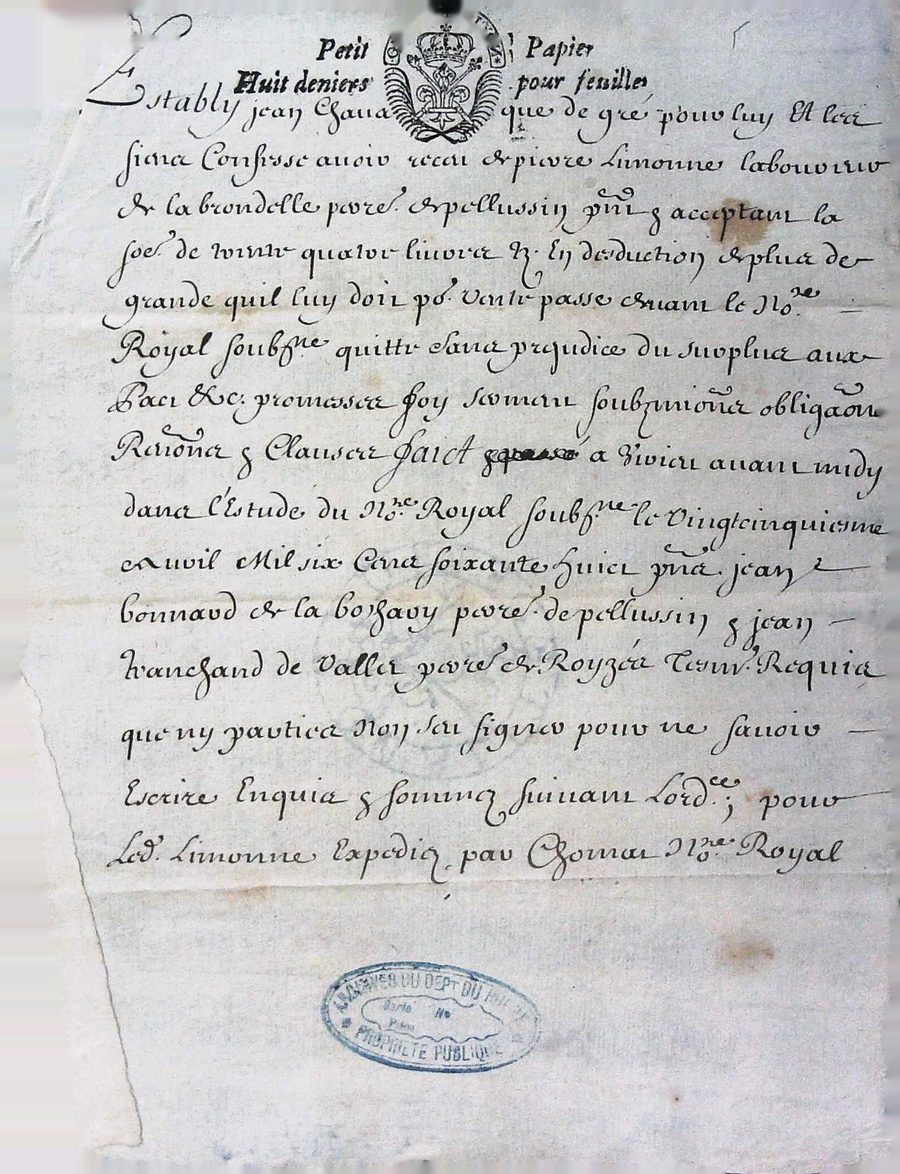 Petit Papier
Huit deniers pour feuille
Estably jean Chava que de gré pour luy Et les
siens Confesse avoir receu de pierre Limonne laboureur
de la brondelle parre. de pellussin pnt & acceptant la
soe. de trente quatre livres tz. En desduction de plus de
grande quil luy doit pr. vente passe devant le No.re
Röyal soubsne quitte sans prejudice du surplus aux
Pact &c. promesses foy serment soubzmions obligaon
Renons & Clauses faict a Virieu avant midy
dans l'Estude du No.re Royal soubsne le Vingtcinquiesme
Avril Mil six Cens soixante huict pns. jean
bonnard de la bochary parre. de pellussin & jean
tranchand de Valles parre. de Royzés Tesm. Requis
que ny parties Non sceu signer pour ne savoir
Escrire Enquis & sommez suivant Lord.ce; pour
Led. Limonne Expediez par Chomat No.re Royal
ARCHIVES DU DEPT DU RHONE
Serie No
Pièce
PROPRIETE PUBLIQUE